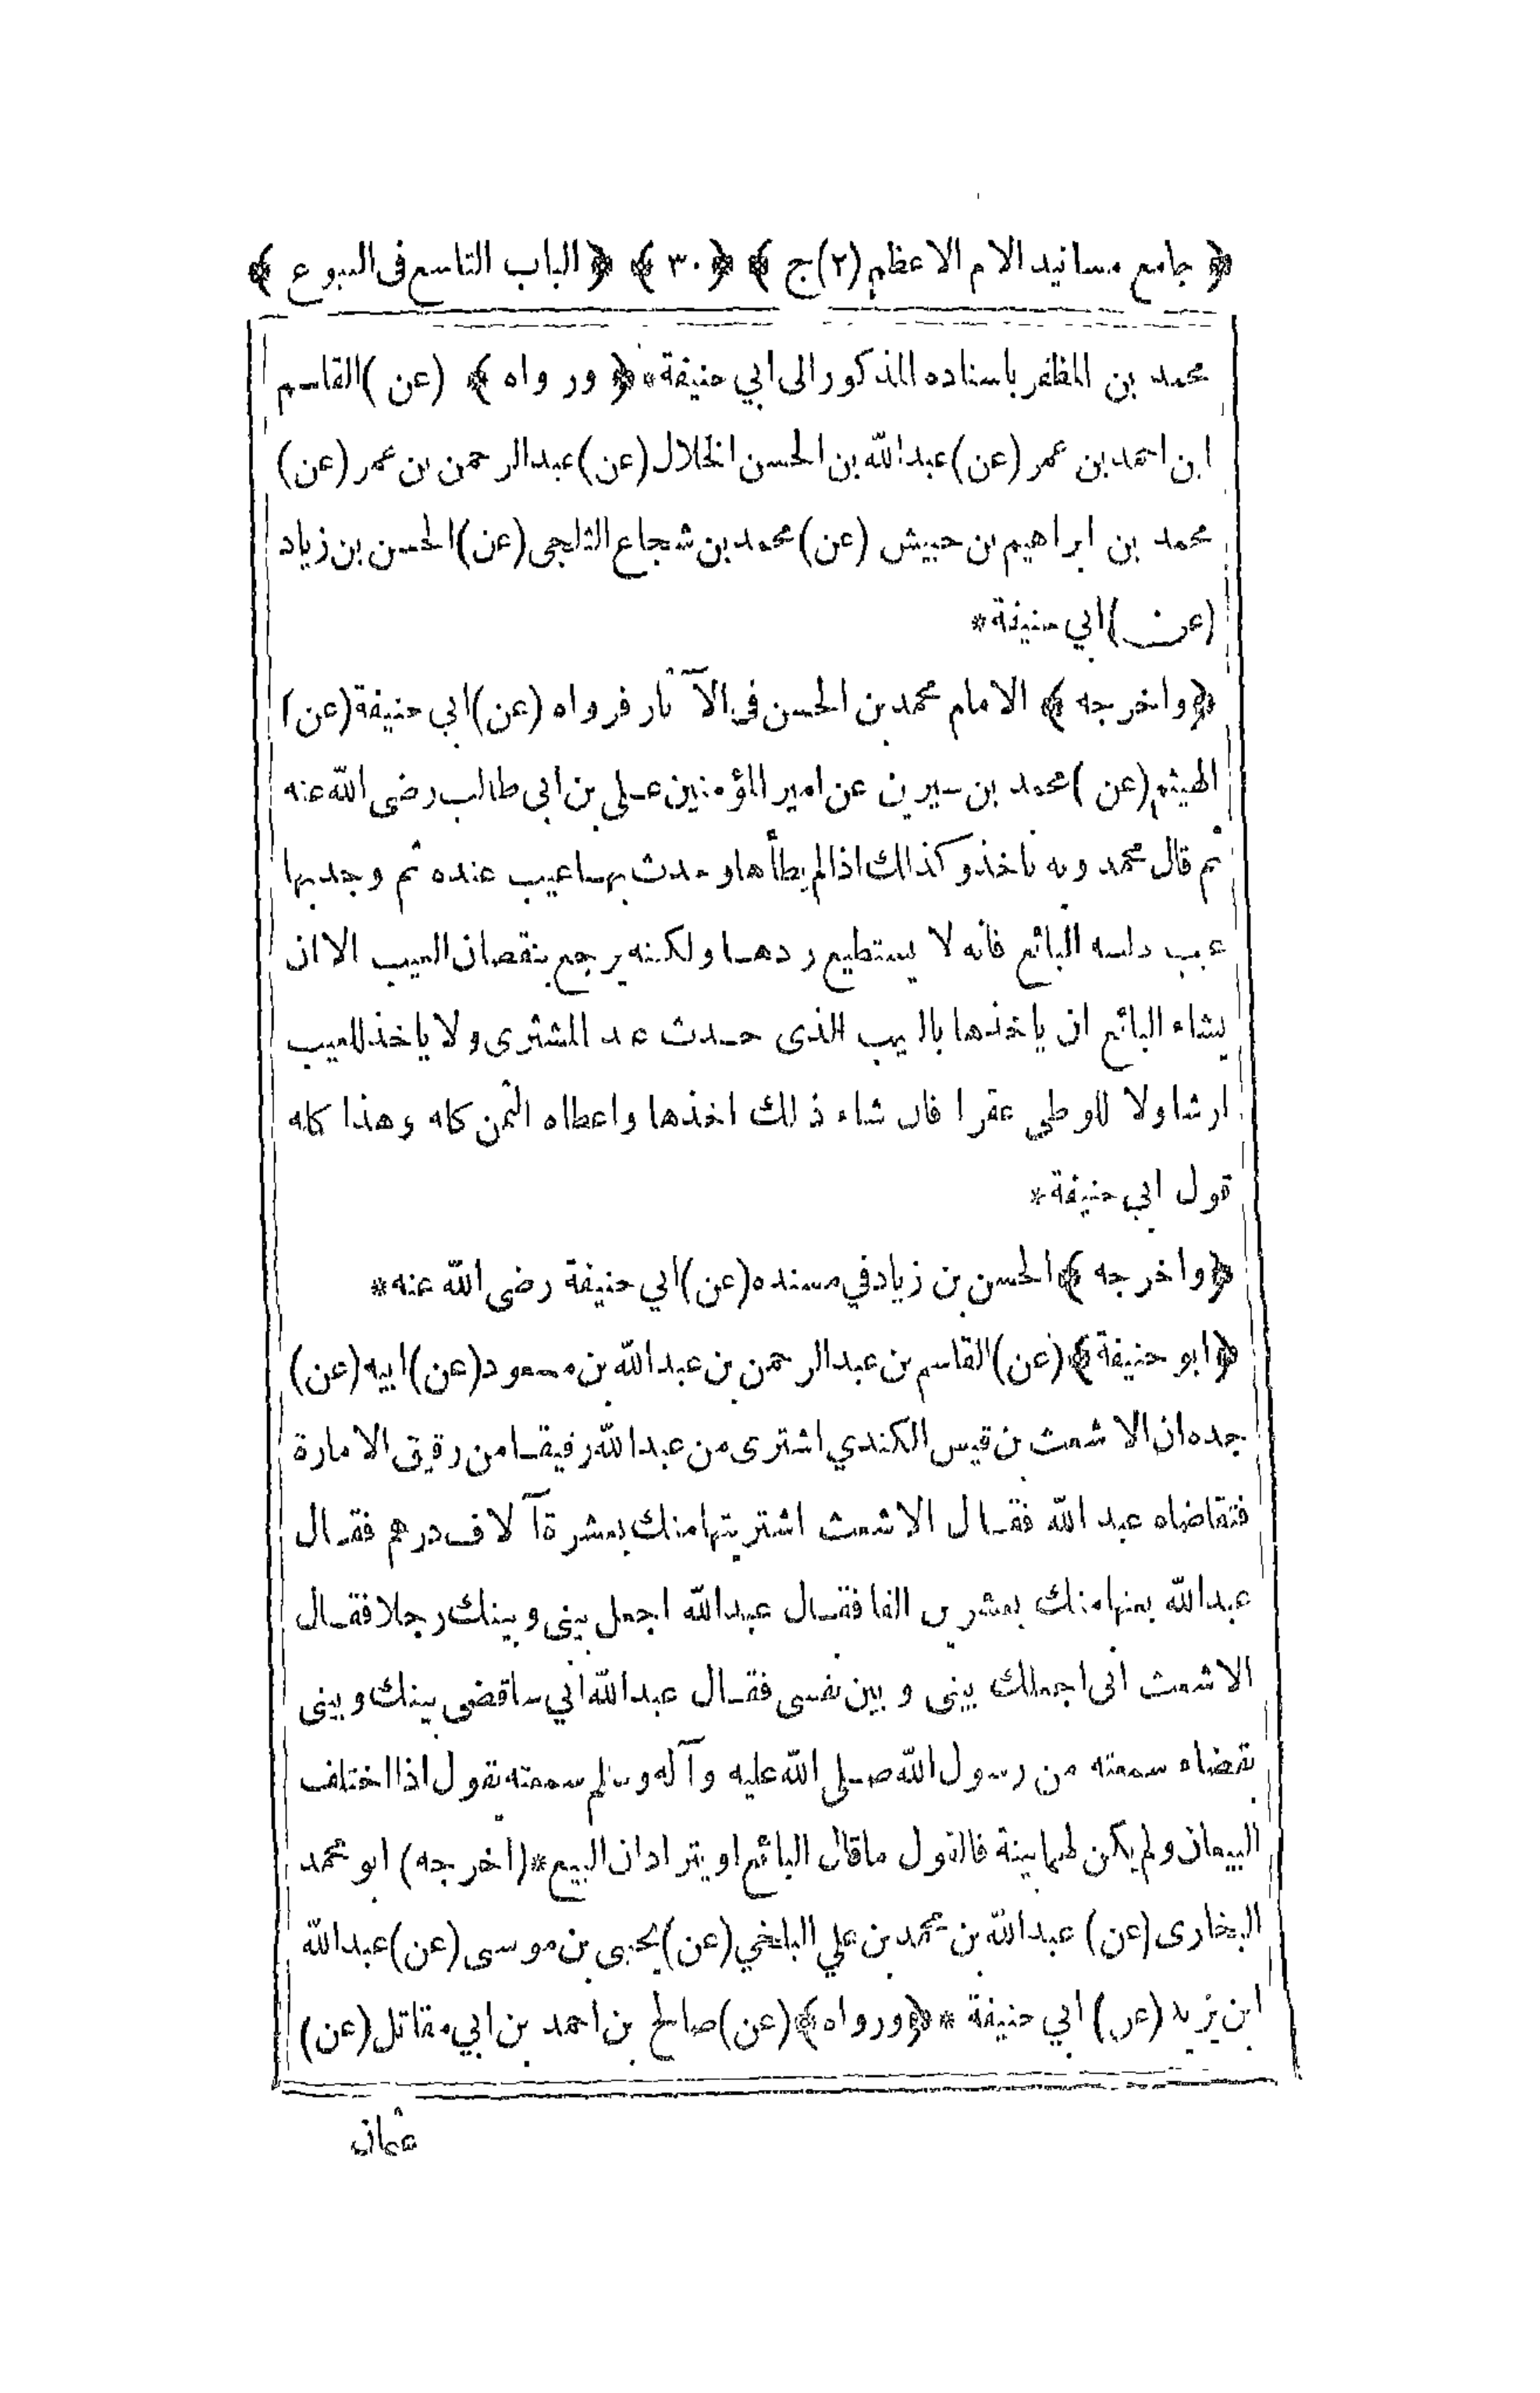 ﴿ جامع مسانيد الامام الاعظم (٢) ج ﴾ ﴿ ٣٠ ﴾ ﴿ الباب التاسع فى البيوع ﴾
محمد بن المظفر باسناده المذكور الى ابي حنيفة * ﴿ ورواه ﴾ (عن) القاسم
ابن احمد بن عمر (عن) عبد الله بن الحسن الخلال (عن) عبد الرحمن بن عمر (عن)
محمد بن ابراهيم بن حبيش (عن) محمد بن شجاع الثلجى (عن) الحسن بن زياد
(عن) ابي حنيفة *
﴿ واخرجه ﴾ الامام محمد بن الحسن فى الآثار فرواه (عن) ابي حنيفة (عن)
الهيثم (عن) محمد بن سيرين عن امير المؤمنين على بن ابى طالب رضى الله عنه
ثم قال محمد وبه ناخذ وكذالك اذا لم يطأها وحدث بها عيب عنده ثم وجد بها
عيب دلسه البائع فانه لا يستطيع ردها ولكنه يرجع بنقصان العيب الا ان
يشاء البائع ان ياخذها بالعيب الذى حدث عند المشترى ولا ياخذ للعيب
ارشا ولا للوطى عقرا فان شاء ذلك اخذها واعطاه الثمن كله وهذا كله
قول ابي حنيفة *
﴿ واخرجه ﴾ الحسن بن زياد في مسنده (عن) ابي حنيفة رضى الله عنه *
﴿ ابو حنيفة ﴾ (عن) القاسم بن عبد الرحمن بن عبد الله بن مسعود (عن) ابيه (عن)
جده ان الاشعث بن قيس الكندي اشترى من عبد الله رقيقا من رقيق الامارة
فتقاضاه عبد الله فقال الاشعث اشتريتها منك بعشرة آلاف درهم فقال
عبد الله بعتها منك بعشرين الفا فقال عبد الله اجعل بينى وبينك رجلا فقال
الاشعث انى اجعلك بينى وبين نفسى فقال عبد الله انى ساقضى بينك وبينى
بقضاء سمعته من رسول الله صلى الله عليه وآله وسلم سمعته يقول اذا اختلف
البيعان ولم يكن لهما بينة فالقول ما قال البائع او يترادان البيع * (اخرجه) ابو محمد
البخارى (عن) عبد الله بن محمد بن علي البلخي (عن) يحيى بن موسى (عن) عبد الله
ابن يزيد (عن) ابي حنيفة * ﴿ ورواه ﴾ (عن) صالح بن احمد بن ابي مقاتل (عن)
عثمان